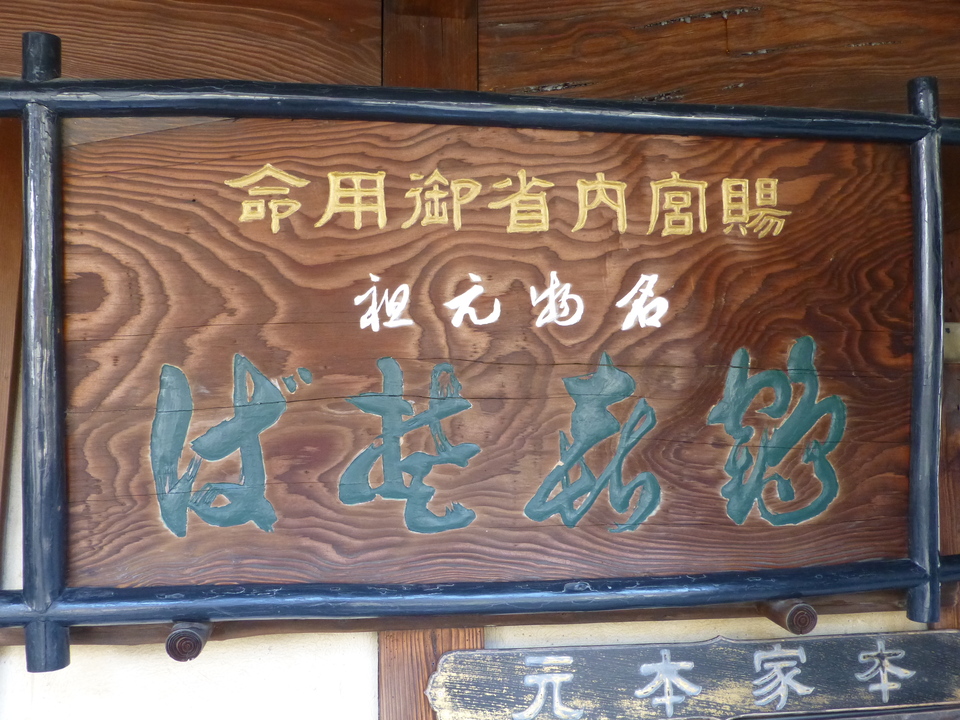 賜宮内省御用命
名物元祖
鶴㐂そば
本家本元